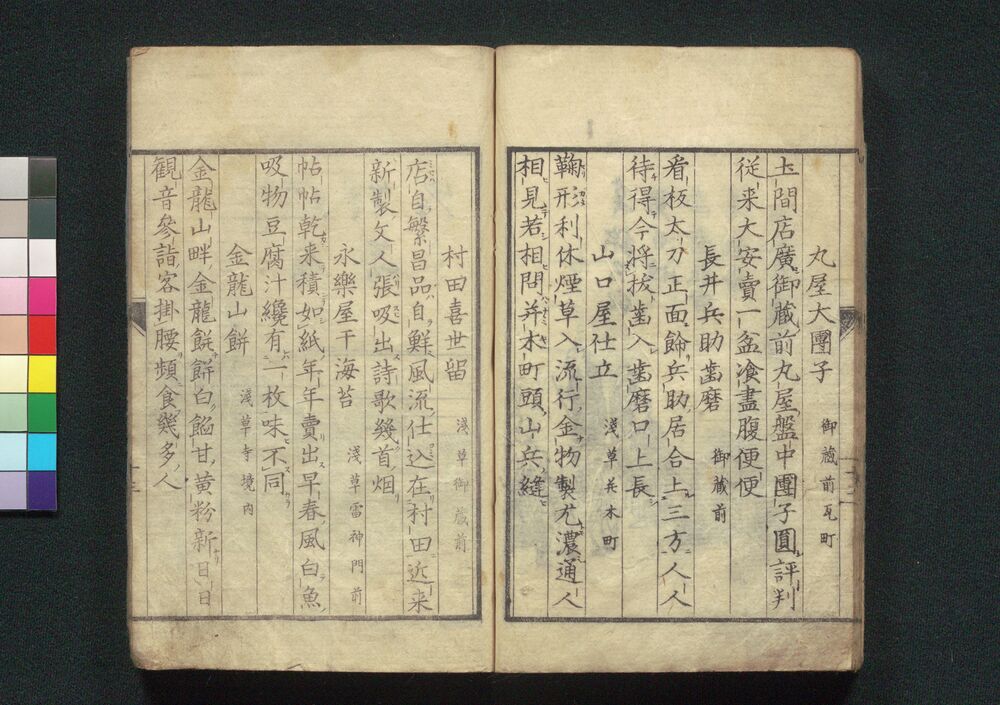 丸屋大團子 御藏前瓦町
土間店廣御藏前丸屋盤中團子圓評判
従来大安賣一盆飡盡腹便便
長井兵助歯磨 御藏前
看板太刀正面餝兵助居合上三方人人
待得今將拔歯入歯磨口上長
山口屋仕立 淺草並木町
鞠形利休煙草入流行金物製尤濃通人
相見若相問並木町頭山兵縫
村田喜世留 淺草御藏前
店自繁昌品自鮮風流仕込在村田近来
新製文人張吸出詩歌幾首烟
永樂屋干海苔 淺草雷神門前
帖帖乾来積如紙年年賣出早春風白魚
吸物豆腐汁纔有一枚味不同
金龍山餅 淺草寺境内
金龍山畔金龍餅餅白餡甘黄粉新日日
観音參詣客掛腰頻食幾多人